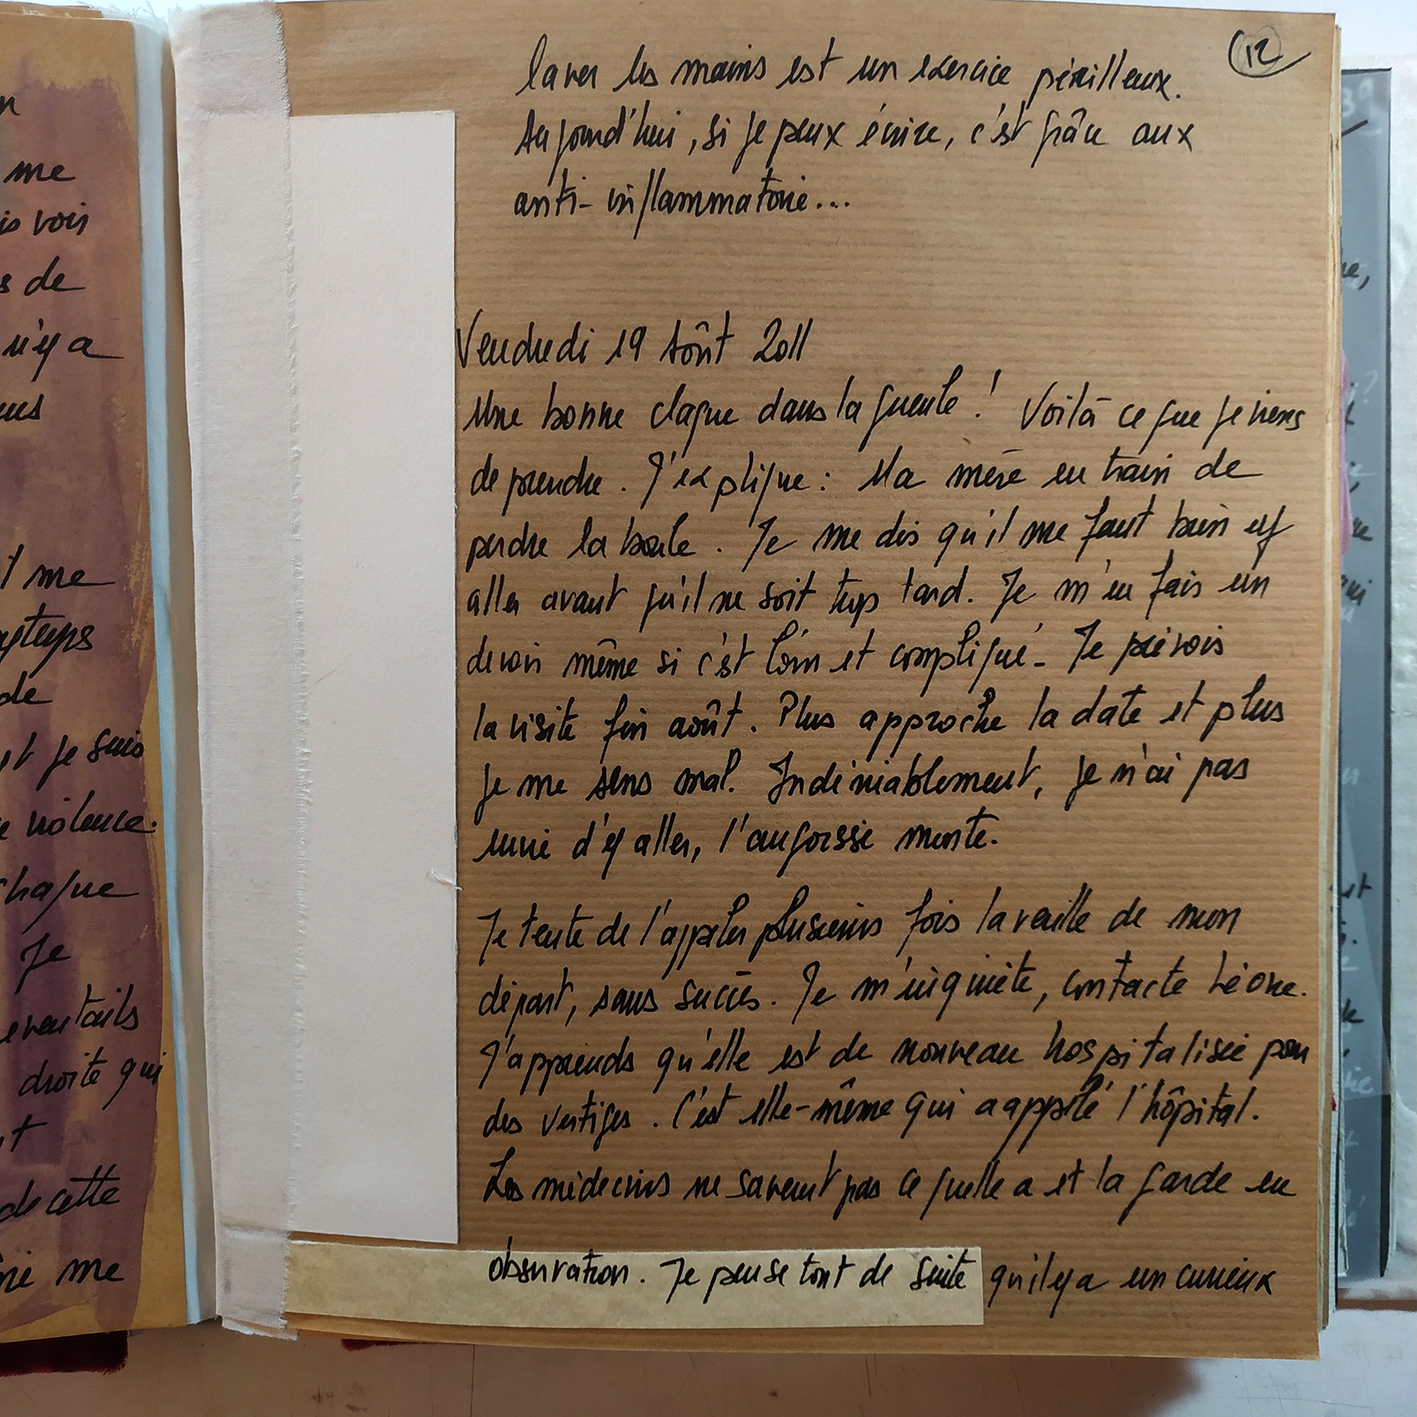 12
laver les mains est un exercice périlleux.
Aujourd'hui, si je peux écrire, c'est grâce aux
anti-inflammatoire...
Vendredi 19 Aôut 2011
Une bonne claque dans la gueule ! Voilà ce que je viens
de prendre. J'explique : Ma mère en train de
perdre la boule. Je me dis qu'il me faut bien y
aller avant qu'il ne soit trop tard. Je m'en fais un
devoir même si c'est loin et compliqué. Je prévois
la visite fin août. Plus approche la date et plus
je me sens mal. Indéniablement, je n'ai pas
envie d'y aller, l'angoisse monte.
Je tente de l'appeler plusieurs fois la veille de mon
départ, sans succès. Je m'inquiète, contacte Léone.
J'apprends qu'elle est de nouveau hospitalisée pour
des vertiges. C'est elle-même qui a appelé l'hôpital.
Les médecins ne savent pas ce quelle a et la garde en
observation. Je pense tout de suite qu'il y a un curieux
n
me
is vois
s de
n'y a
il me
longtemps
de
et je suis
violence.
chaque
Je
éventails
droite qui
de cette
me